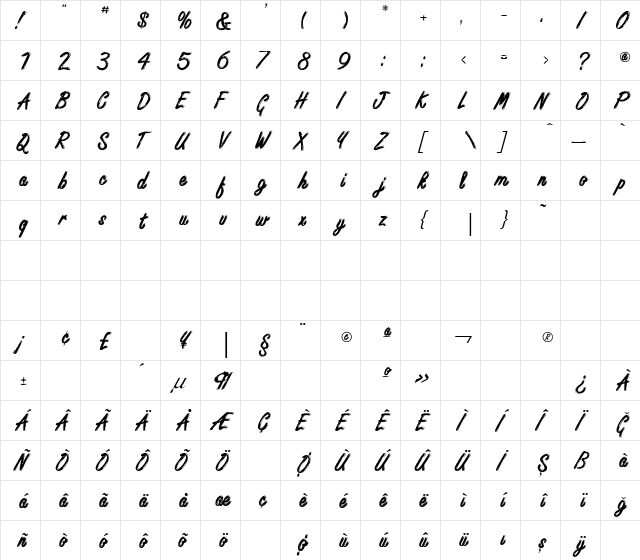 ! " # $ % & ' ( ) * + , - . / 0
1 2 3 4 5 6 7 8 9 : ; < = > ? @
A B C D E F G H I J K L M N O P
Q R S T U V W X Y Z [ \ ] ^ _ `
a b c d e f g h i j k l m n o p
q r s t u v w x y z { | } ~
¡ ¢ £ ¥ ¦ § ¨ © ª ¬ ®
± ´ µ ¶ º » ¿ À
Á Â Ã Ä Å Æ Ç È É Ê Ë Ì Í Î Ï Ğ
Ñ Ò Ó Ô Õ Ö Ø Ù Ú Û Ü İ Ş ß à
á â ã ä å æ ç è é ê ë ì í î ï ğ
ñ ò ó ô õ ö ø ù ú û ü ı ş ÿ